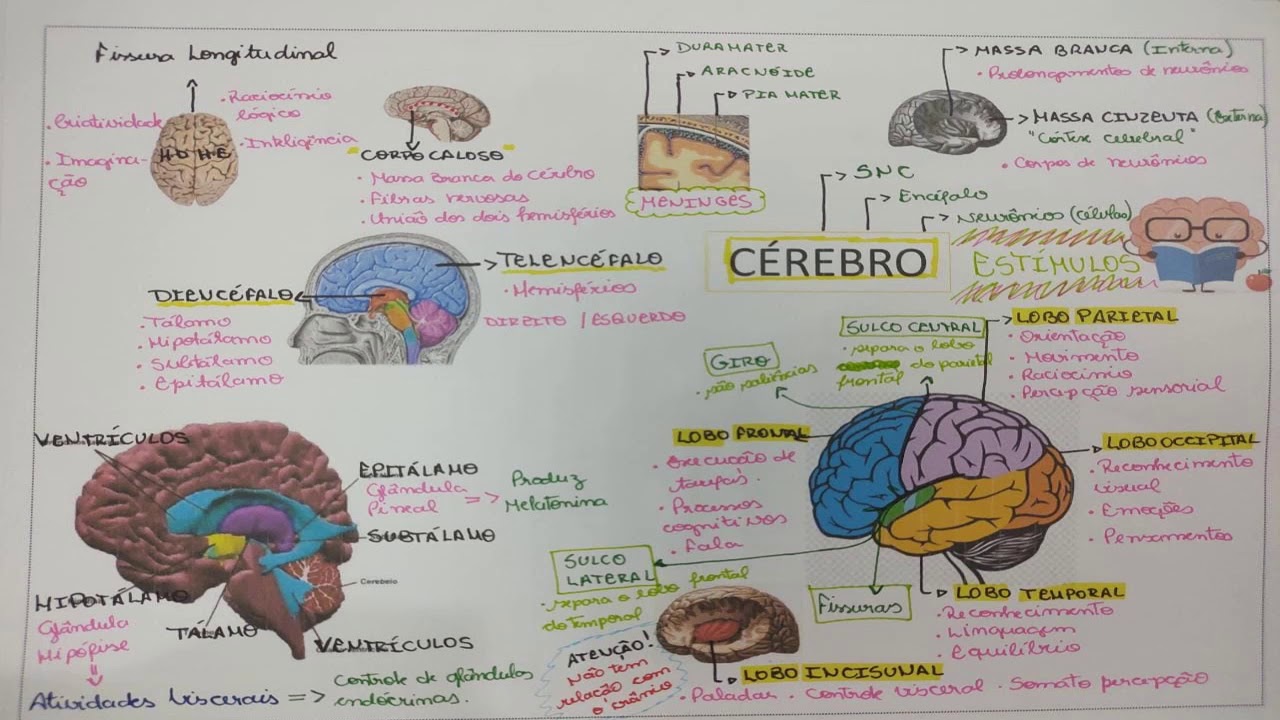 Fissura Longitudinal
• Criatividade
• Imagina-
ção
• Raciocínio
lógico
• Inteligência
H D H E
"CORPO CALOSO"
• Massa Branca do cérebro
• Fibras nervosas
• União dos dois hemisférios
DURAMATER
ARACNÓIDE
PIA MATER
MENINGES
MASSA BRANCA (Interna)
• Prolongamentos de neurônios
MASSA CINZENTA (Externa)
"Córtex cerebral"
• Corpos de neurônios
SNC
Encéfalo
Neurônios (células)
CÉREBRO
ESTÍMULOS
TELENCÉFALO
• Hemisférios
DIREITO / ESQUERDO
DIENCÉFALO
• Tálamo
• Hipotálamo
• Subtálamo
• Epitálamo
VENTRÍCULOS
EPITÁLAMO
Glândula
Pineal
=>
Produz
Melatonina
SUBTÁLAMO
Cerebelo
HIPOTÁLAMO
Glândula
Hipófise
TÁLAMO
VENTRÍCULOS
Atividades Viscerais =>
Controle de glândulas
endócrinas.
GIRO
• são saliências
SULCO CENTRAL
• separa o lobo
do parietal
frontal
LOBO PARIETAL
• Orientação
• Movimento
• Raciocínio
• Percepção sensorial
LOBO FRONTAL
• Execução de
tarefas.
• Processos
cognitivos
• Fala
LOBO OCCIPITAL
• Reconhecimento
visual
• Emoções
• Pensamentos
SULCO
LATERAL
• separa o lobo frontal
do temporal
Fissuras
LOBO TEMPORAL
• Reconhecimento
• Linguagem
• Equilíbrio
ATENÇÃO!
Não tem
relação com
o crânio
LOBO INCISUNAL
• Paladar • Controle visceral • Somato percepção